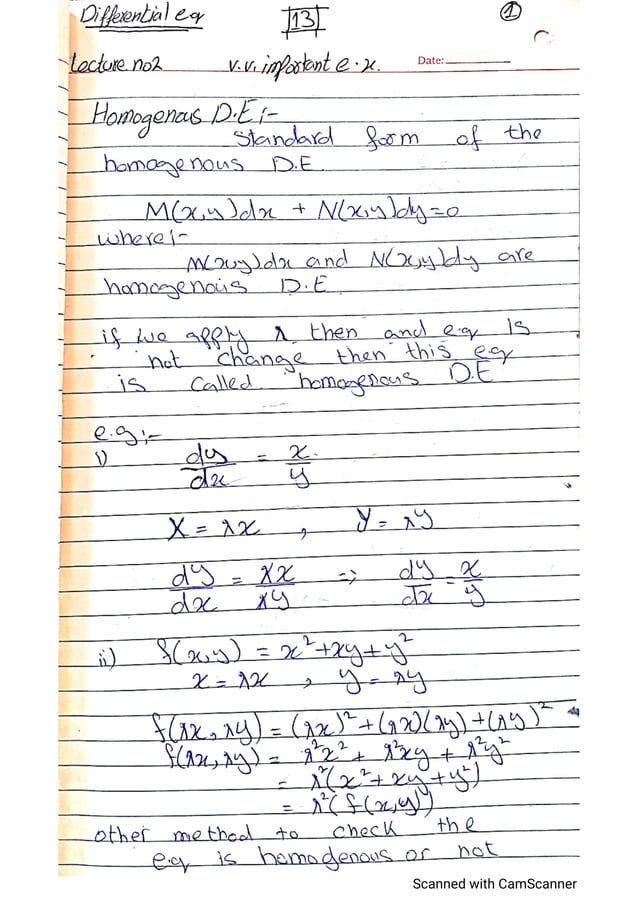 Differential eq 13 1
Lecture no2 v.v. important e.x. Date:
Homogenous D.E:-
Standard form of the
homogenous D.E
M(x,y)dx + N(x,y)dy=0
where:-
M(x,y)dx and N(x,y)dy are
homogenous D.E
if we apply λ then and eq Is
not change then this eq
is called homogenous D.E
e.g:-
i) dy/dx = x/y
X = λx , Y = λy
dy/dx = λx/λy => dy/dx = x/y
ii) f(x,y) = x²+xy+y²
x = λx , y = λy
f(λx, λy) = (λx)²+(λx)(λy)+(λy)²
f(λx, λy) = λ²x² + λ²xy + λ²y²
= λ²(x²+xy+y²)
= λ²(f(x,y))
other method to check the
eq is homogenous or not
Scanned with CamScanner